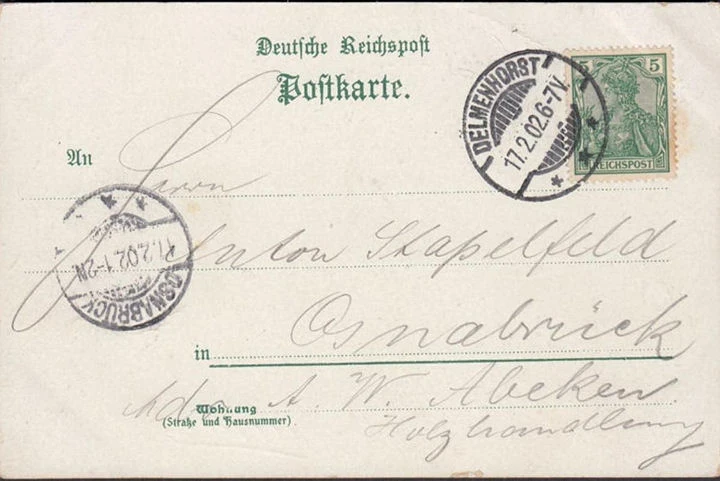 Deutsche Reichspost
Postkarte.
DELMENHORST
17.2.02.6-7V.
5 5
REICHSPOST
An
Herrn
Anton Stapelfeld
OSNABRÜCK
17.2.02.1-2N
Osnabrück
in
Adr. A. W. Abeken
Wohnung
(Straße und Hausnummer)
Holzhandlung